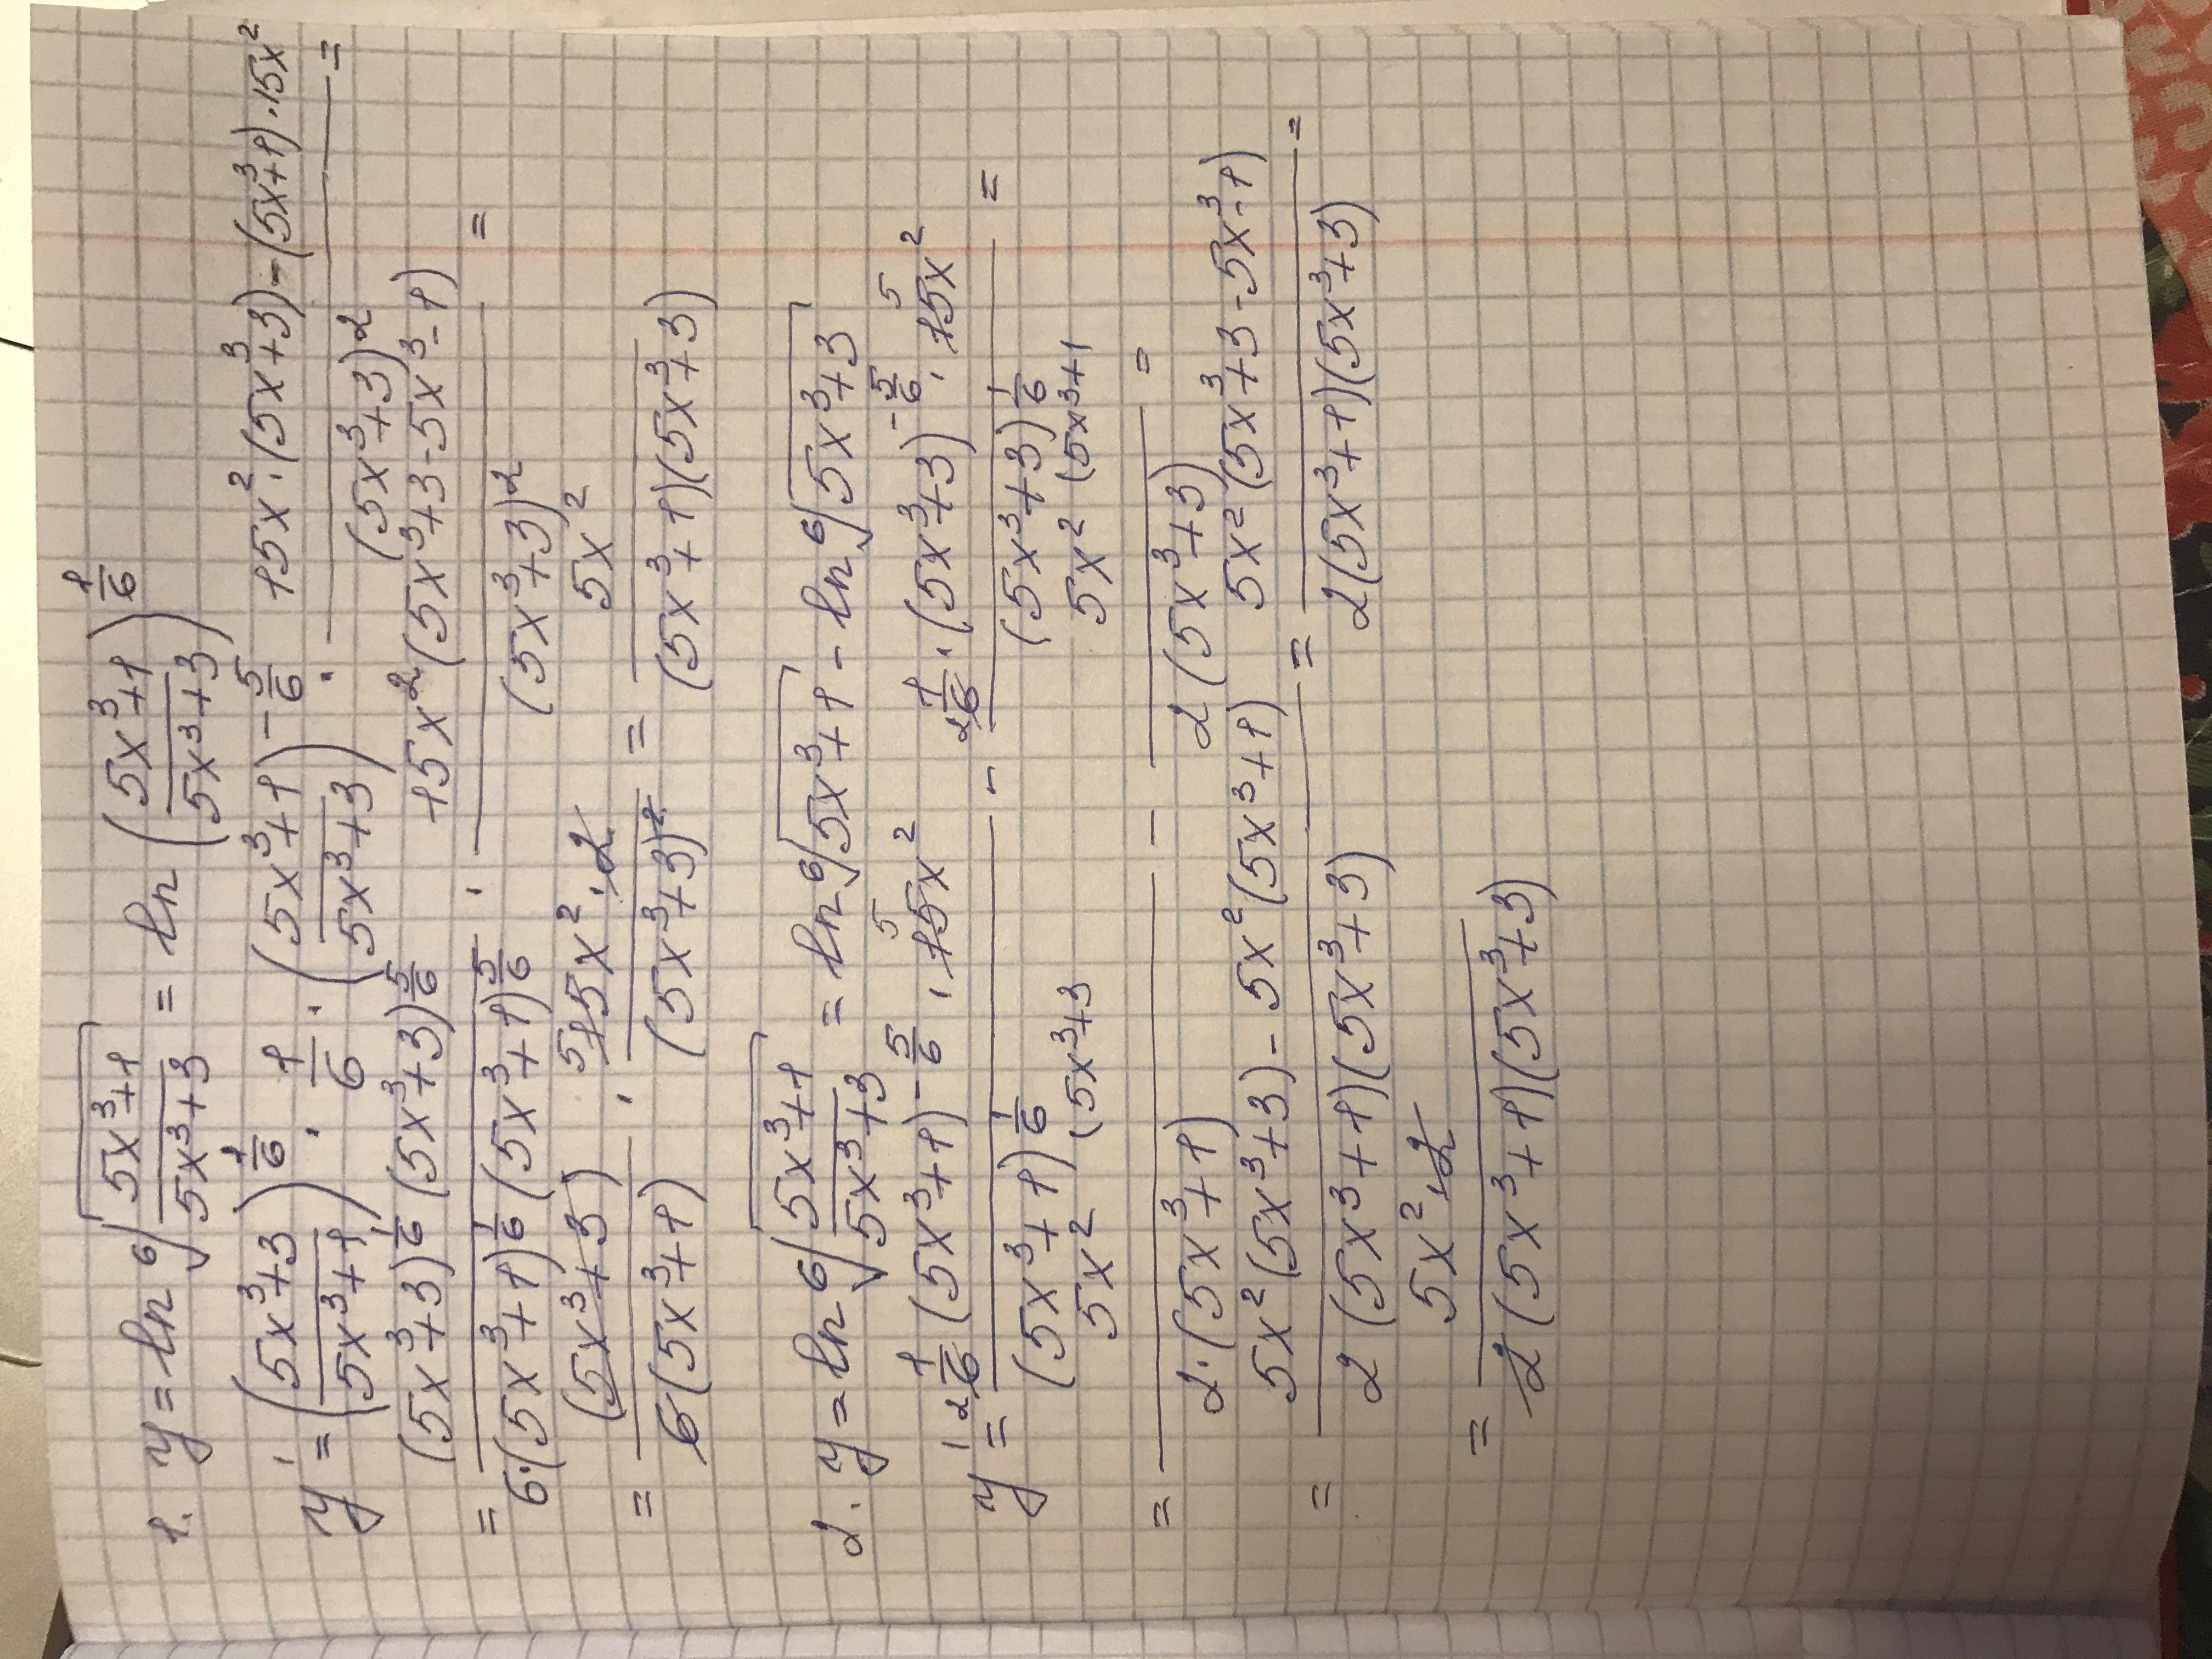 1. y = ln ⁶√((5x³+1)/(5x³+3)) = ln ((5x³+1)/(5x³+3))^(1/6)
y' = ((5x³+3)/(5x³+1))^(1/6) · 1/6 · ((5x³+1)/(5x³+3))^(-5/6) · (15x²·(5x³+3)-(5x³+1)·15x²)/(5x³+3)² =
= ((5x³+3)^(1/6) (5x³+3)^(5/6))/(6·(5x³+1)^(1/6) (5x³+1)^(5/6)) · (15x²(5x³+3-5x³-1))/(5x³+3)² =
= (5x³+3)/(6(5x³+1)) · (5 15x²·2)/(5x³+3)² = 5x²/((5x³+1)(5x³+3))
2. y = ln ⁶√((5x³+1)/(5x³+3)) = ln ⁶√(5x³+1) - ln ⁶√(5x³+3)
y' = (2 1/6 (5x³+1)^(-5/6) · 5 15x²)/(5x³+1)^(1/6) - (2 1/6 · (5x³+3)^(-5/6) · 5 15x²)/(5x³+3)^(1/6) =
= (5x² (5x³+3)/(2·(5x³+1)) - (5x² (5x³+1)/(2(5x³+3)) =
= (5x²(5x³+3)-5x²(5x³+1))/(2(5x³+1)(5x³+3)) = (5x²(5x³+3-5x³-1))/(2(5x³+1)(5x³+3)) =
= (5x²·2)/(2(5x³+1)(5x³+3))